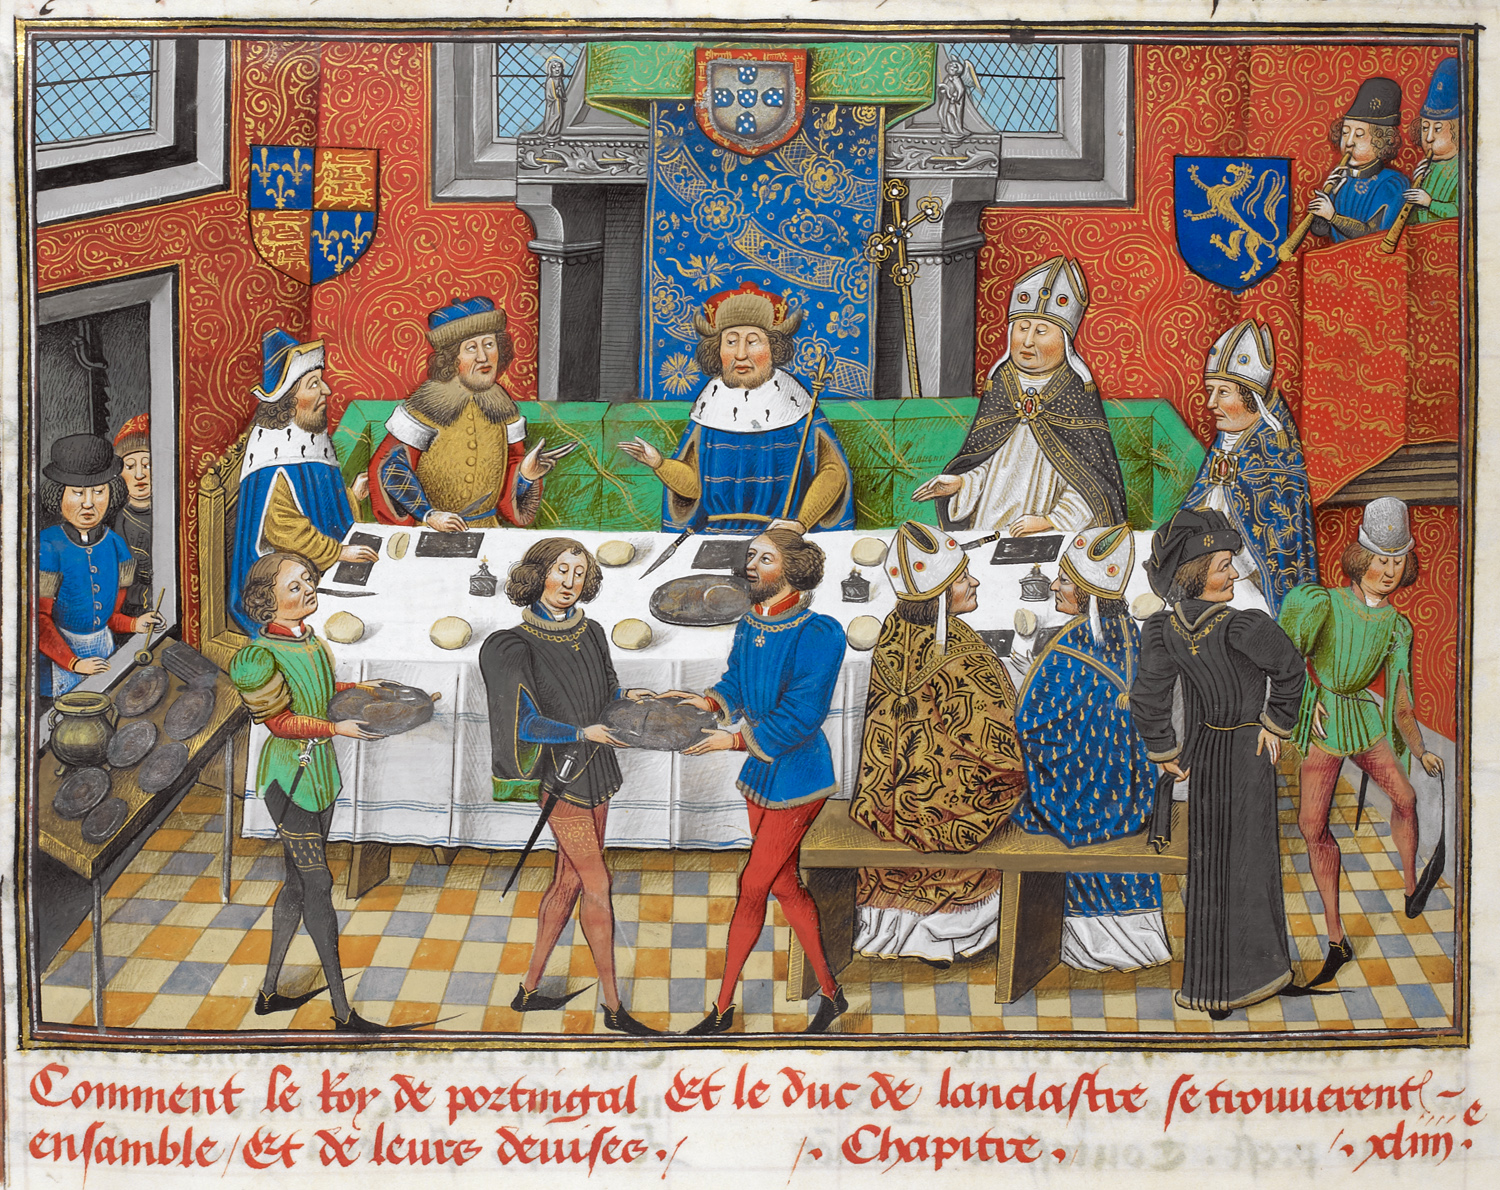 Comment le Roy de portingal Et le duc de lanclastre se trouuerent
ensamble / Et de leurs deuises ./ /. Chapitre . /. xliiii.e